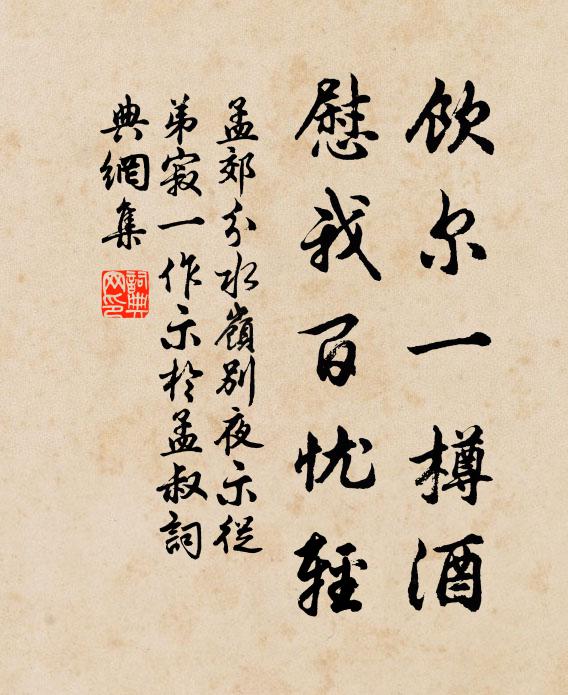 飲尔一樽酒
慰我百忧輕
孟郊分水嶺別夜示從
弟寂一作示於孟叔詞
典網集
詞典
网印